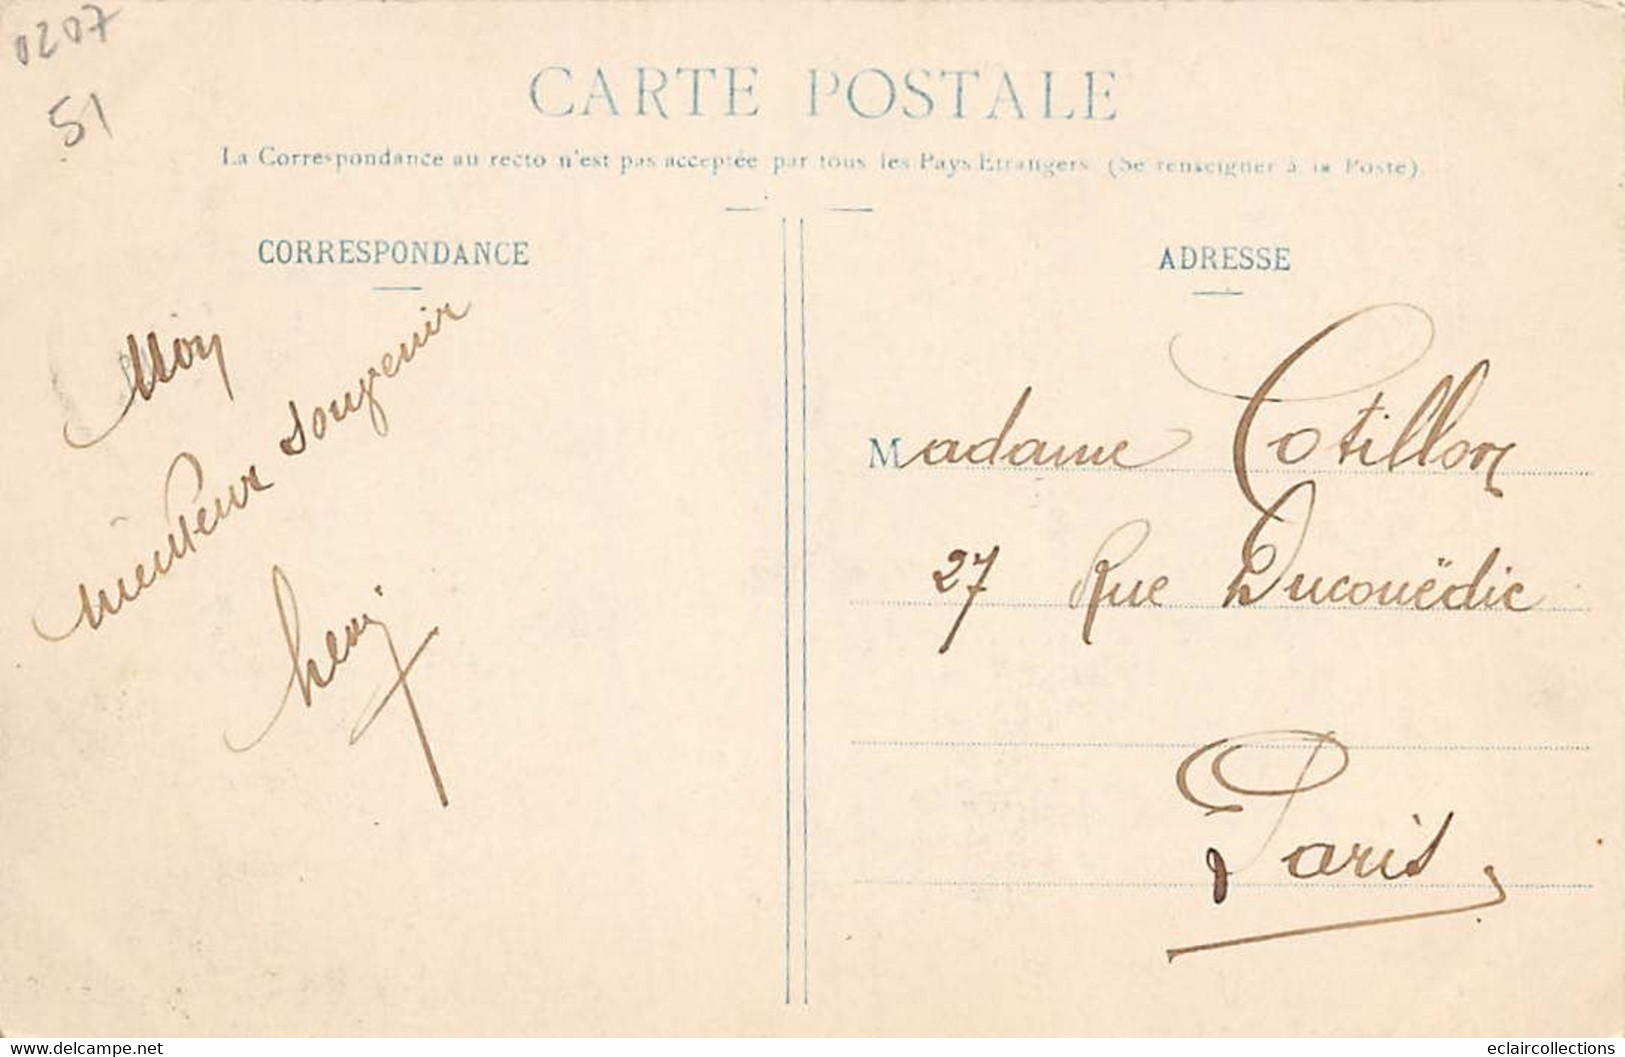 0207
51
CARTE POSTALE
La Correspondance au recto n'est pas acceptée par tous les Pays Etrangers (Se renseigner à la Poste)
CORRESPONDANCE
Mon
meilleur souvenir
henri
ADRESSE
Madame Cotillon
27 Rue Ducouëdic
Paris
delcampe.net
eclaircollections